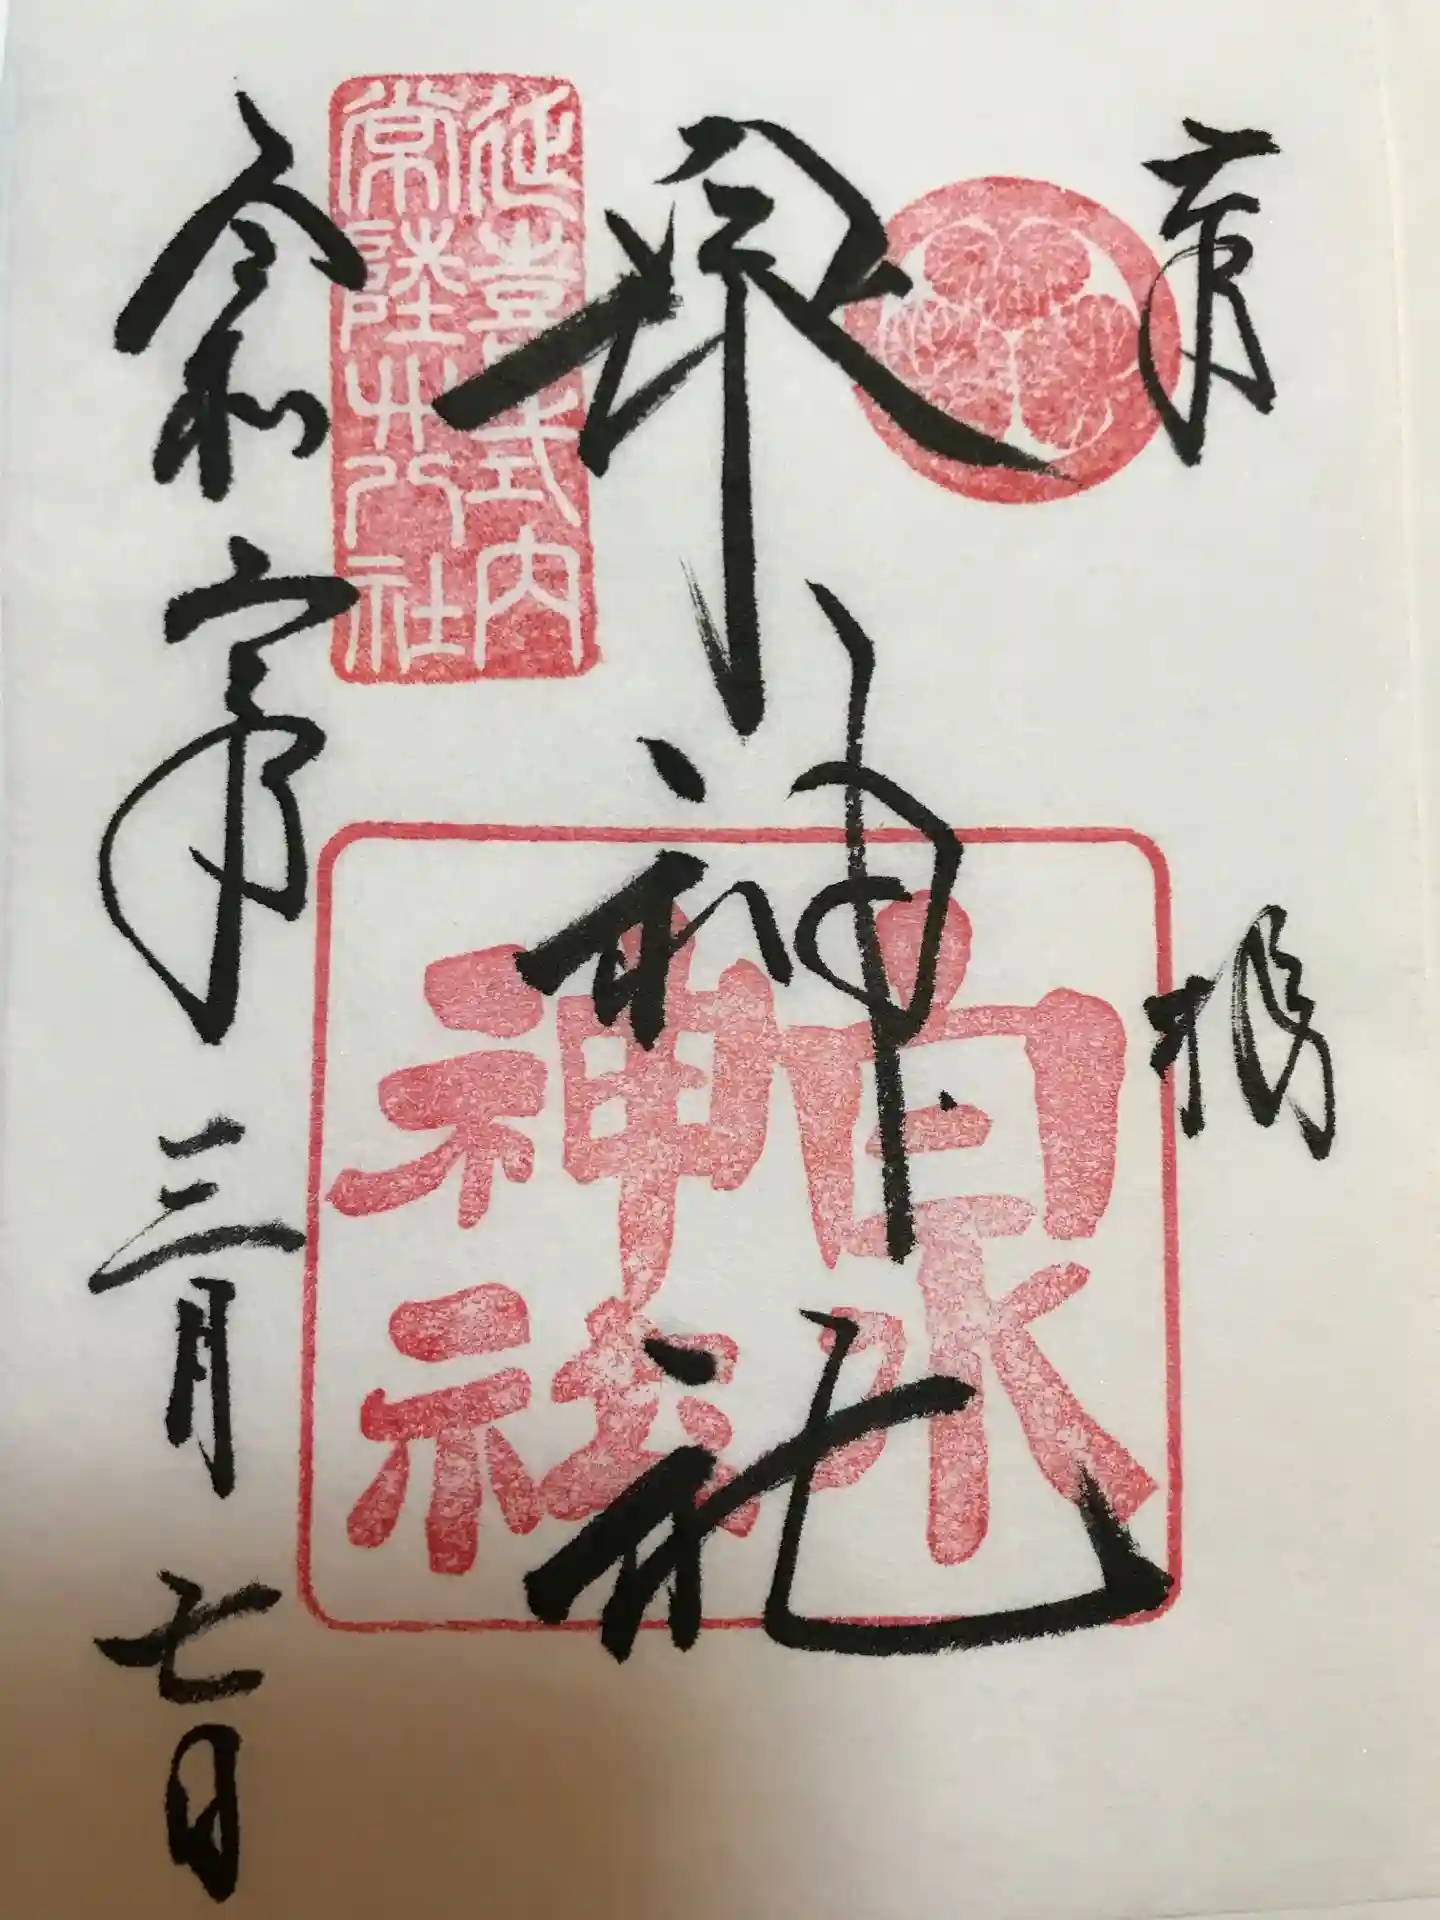 奉拝
泉神社
延喜式内
常陸廿八社
泉神社
令和 年三月七日